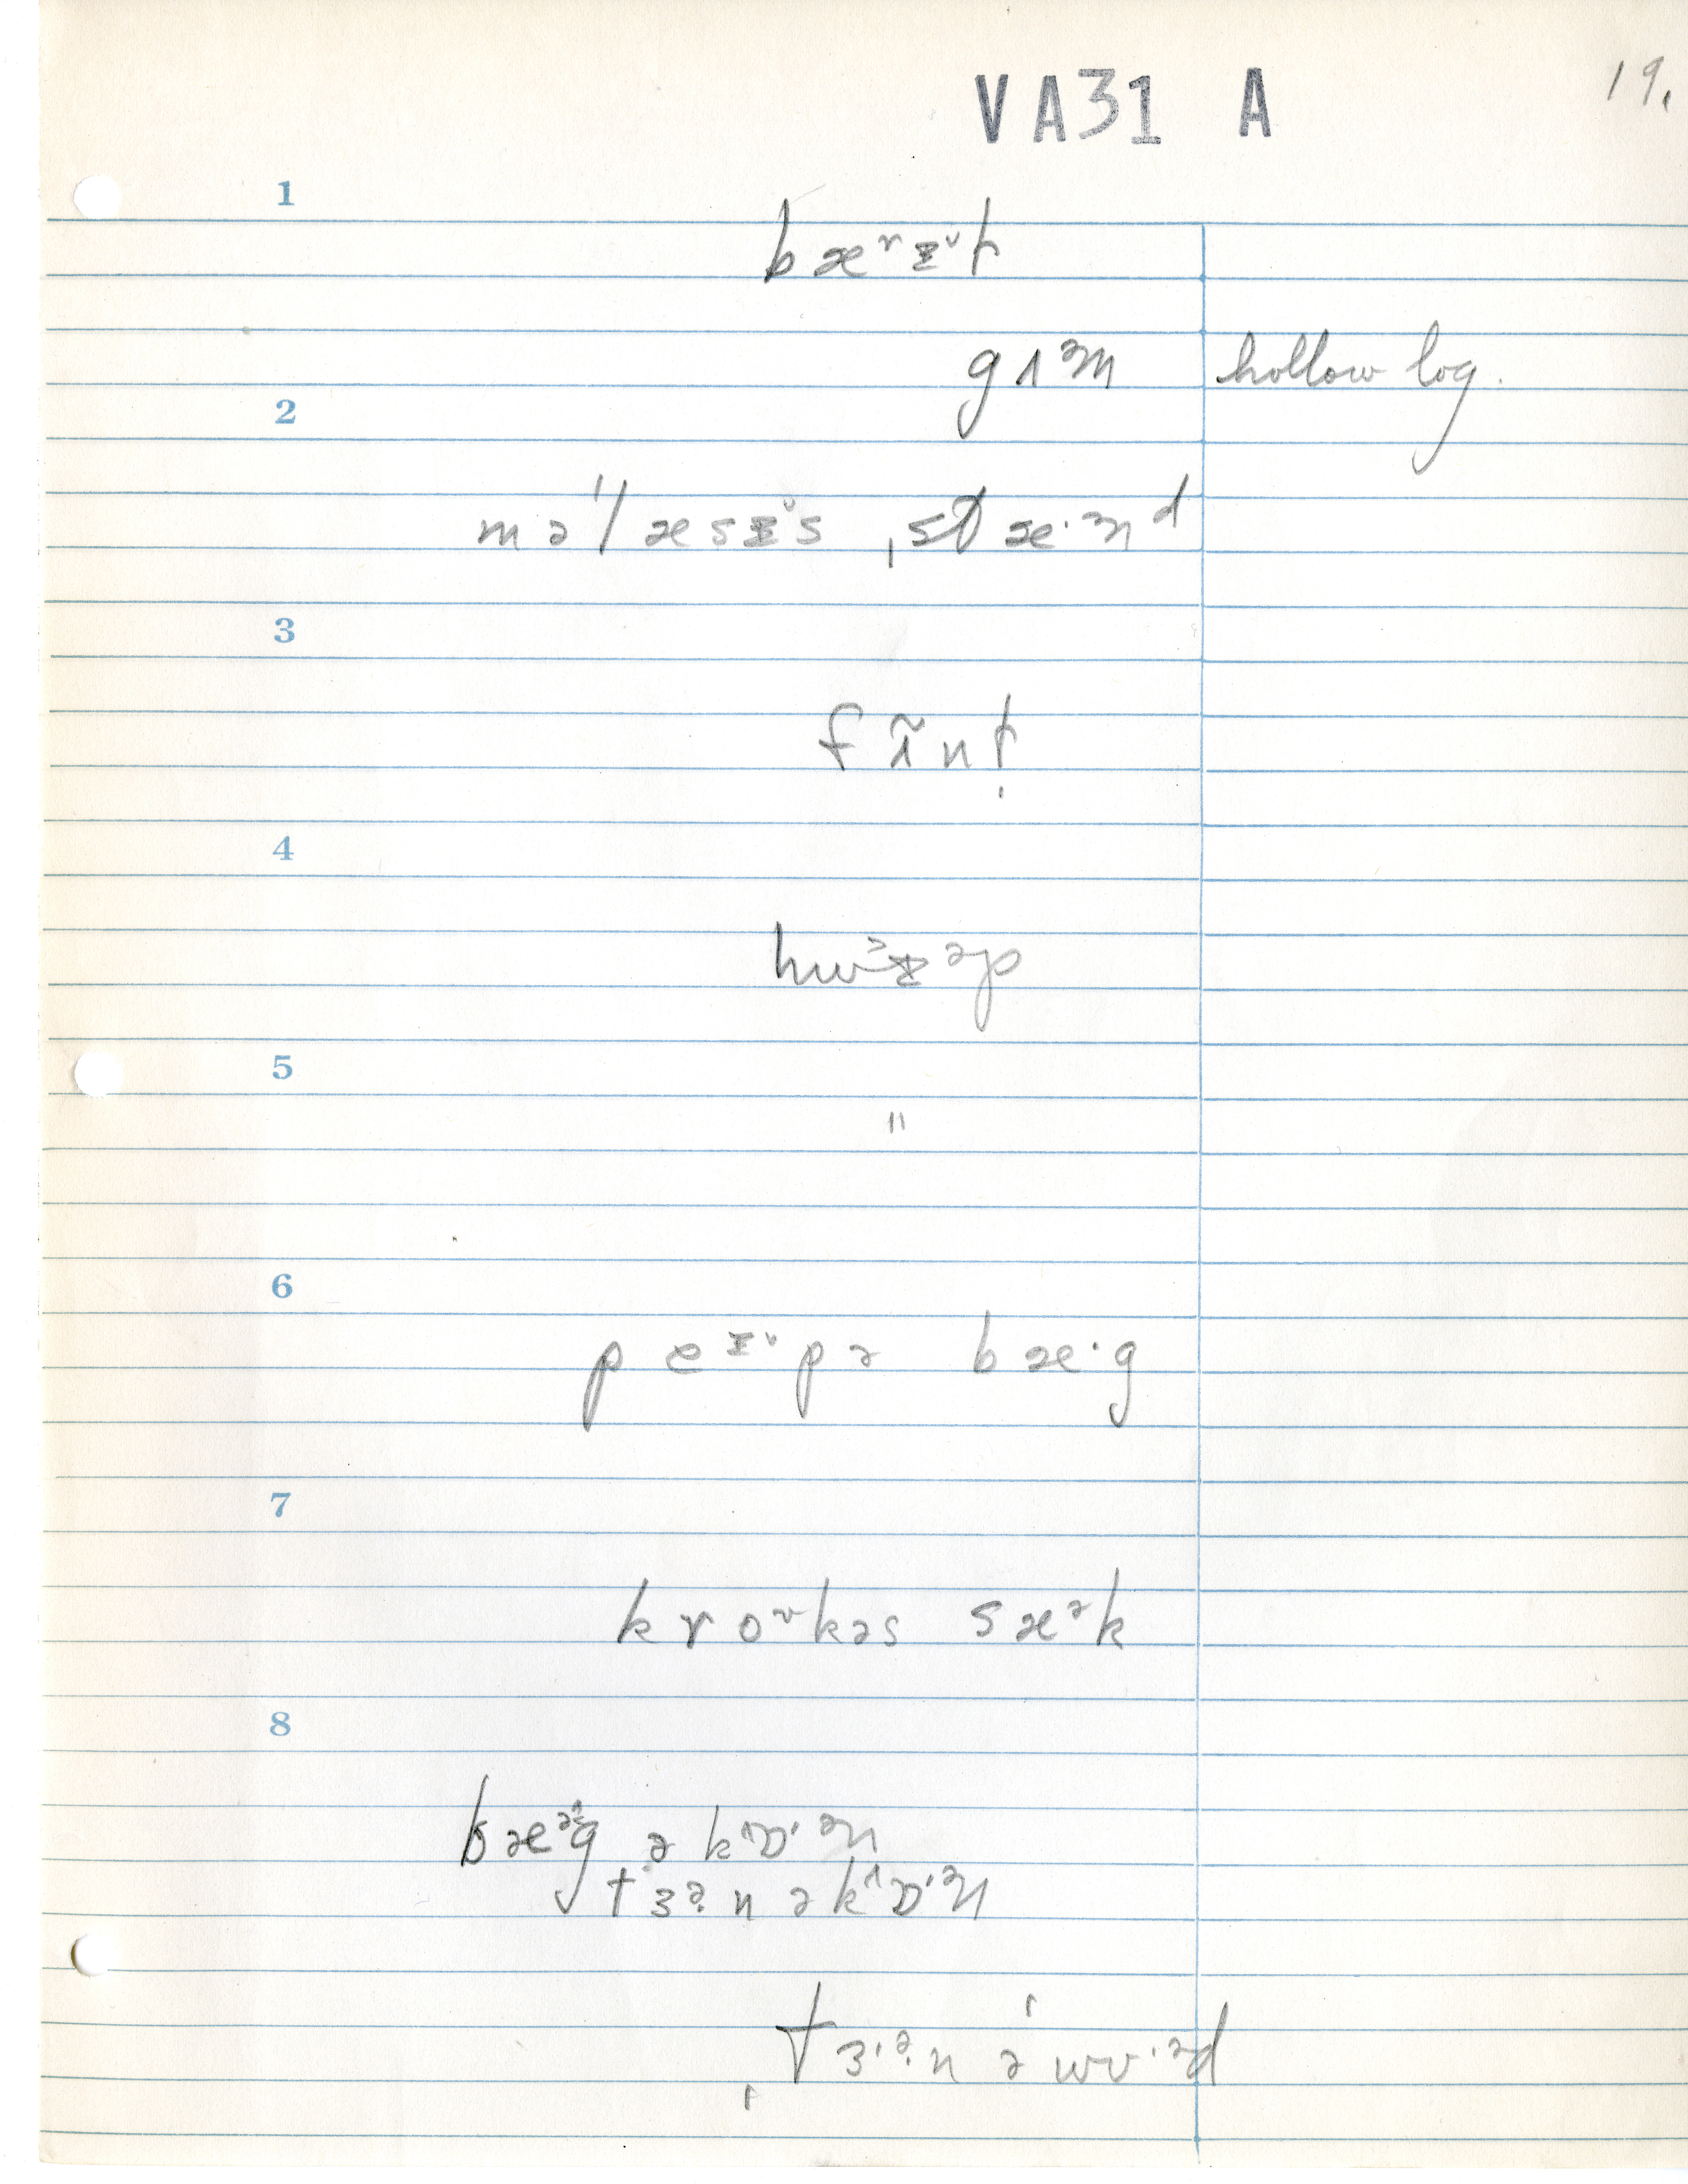 VA31 A
19.
1
bæʳᵻ˅ɫ
gʌᵊm
hollow log.
2
məˈlæsᵻ˅s ˌstæ·ᵊnd
3
fʌ̃nɫ̩
4
hwɪ˃əp
5
"
6
peᵻ˅pə bæ·g
7
kroᵛkəs sæᵊk
8
bæᵊg ə kʌɒ·ᵊn
tɜᵊ̣n ə kʌɒ·ᵊn
ˌtɜ·ᵊ̣n əˈwʊ·ᵊd